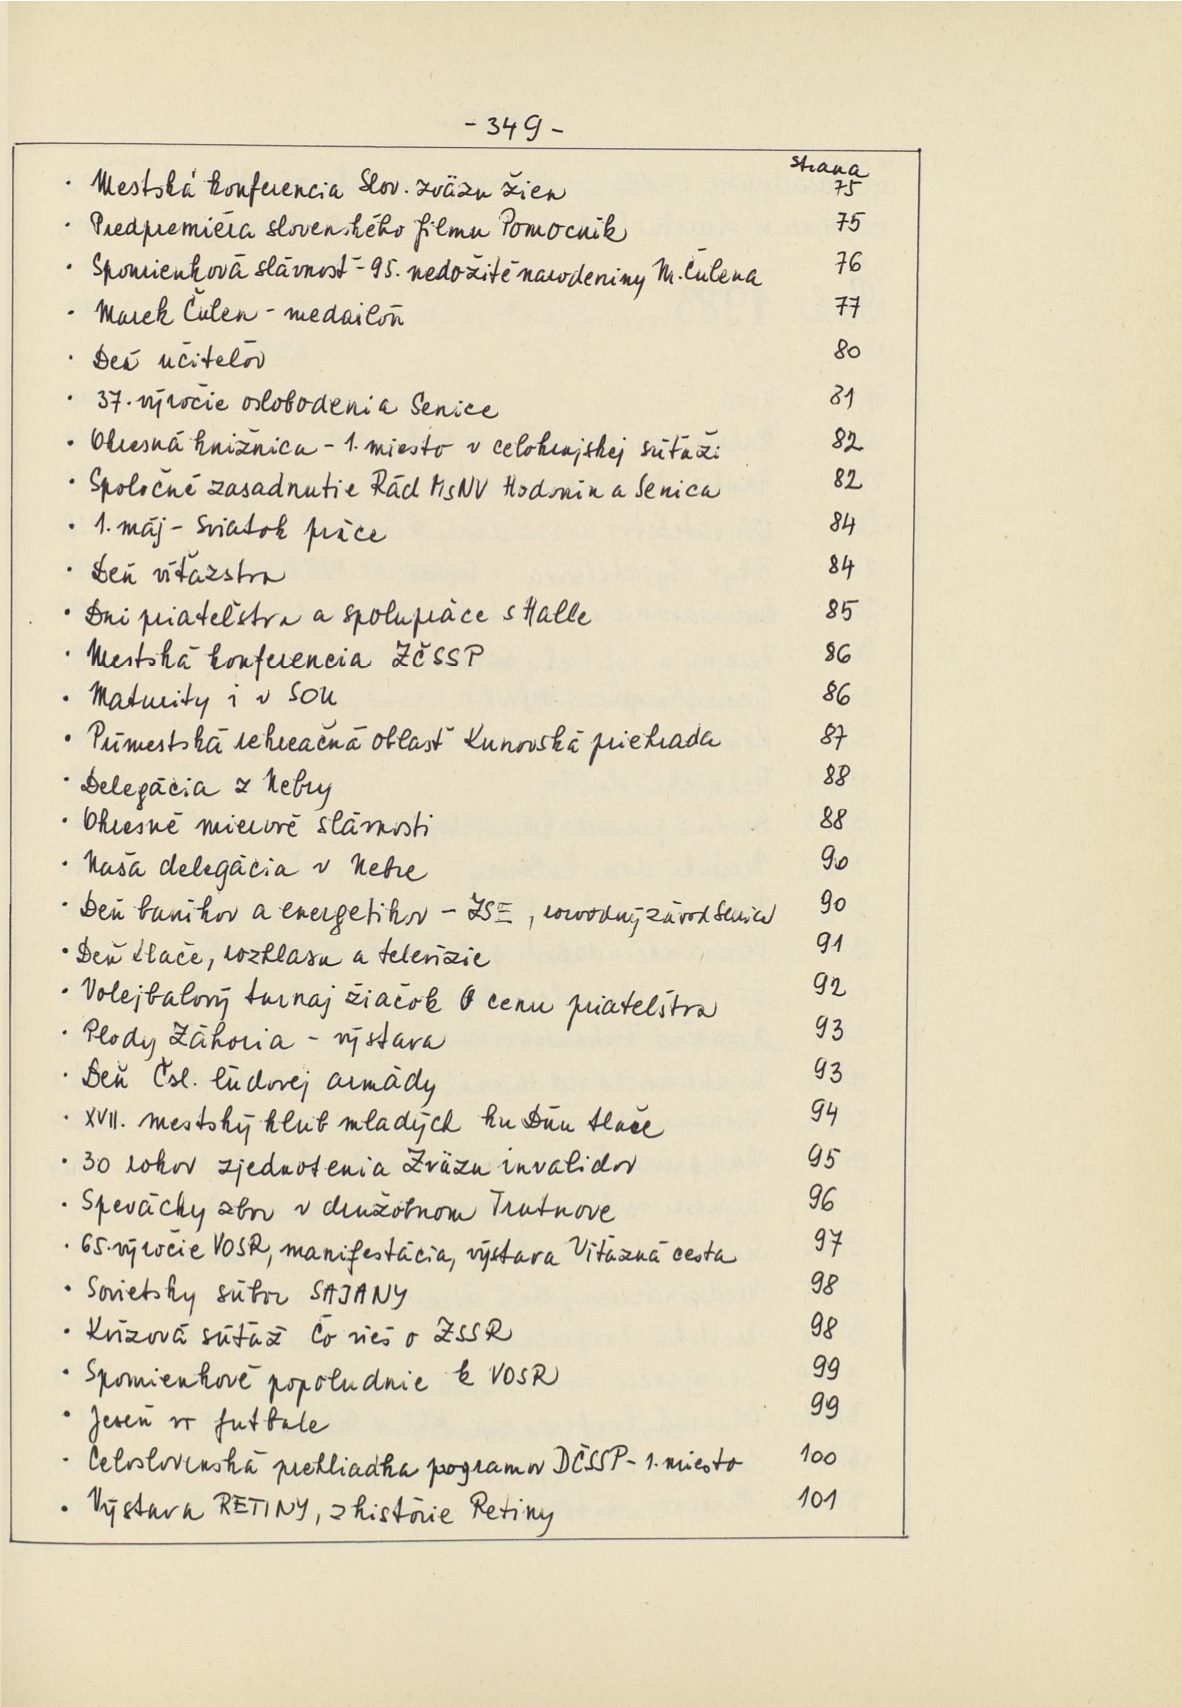 - 349 -
strana
· Mestská konferencia Slov. zväzu žien 75
· Predpremiéra slovenského filmu Pomocník 75
· Spomienková slávnosť - 95. nedožité narodeniny M. Čulena 76
· Marek Čulen - medailón 77
· Deň učiteľov 80
· 37. výročie oslobodenia Senice 81
· Okresná knižnica - 1. miesto v celokrajskej súťaži 82
· Spoločné zasadnutie Rád MsNV Hodonín a Senica 82
· 1. máj - Sviatok práce 84
· Deň víťazstva 84
· Dni priateľstva a spolupráce s Halle 85
· Mestská konferencia ZČSSP 86
· Maturity i v SOU 86
· Prímestská rekreačná oblasť Kunovská priehrada 87
· Delegácia z Nebry 88
· Okresné mierové slávnosti 88
· Naša delegácia v Nebre 90
· Deň baníkov a energetikov - ZSE, rozvodný závod Senica 90
· Deň tlače, rozhlasu a televízie 91
· Volejbalový turnaj žiačok O cenu priateľstva 92
· Plody Záhoria - výstava 93
· Deň Čsl. ľudovej armády 93
· XVII. mestský klub mladých ku Dňu tlače 94
· 30 rokov zjednotenia Zväzu invalidov 95
· Spevácky zbor v družobnom Trutnove 96
· 65. výročie VOSR, manifestácia, výstava Víťazná cesta 97
· Sovietsky súbor SAJANY 98
· Kvízová súťaž Čo vieš o ZSSR 98
· Spomienkové popoludnie k VOSR 99
· Jeseň vo futbale 99
· Celoslovenská prehliadka pogramov DČSSP - 1. miesto 100
· Výstava RETINY, z histórie Retiny 101